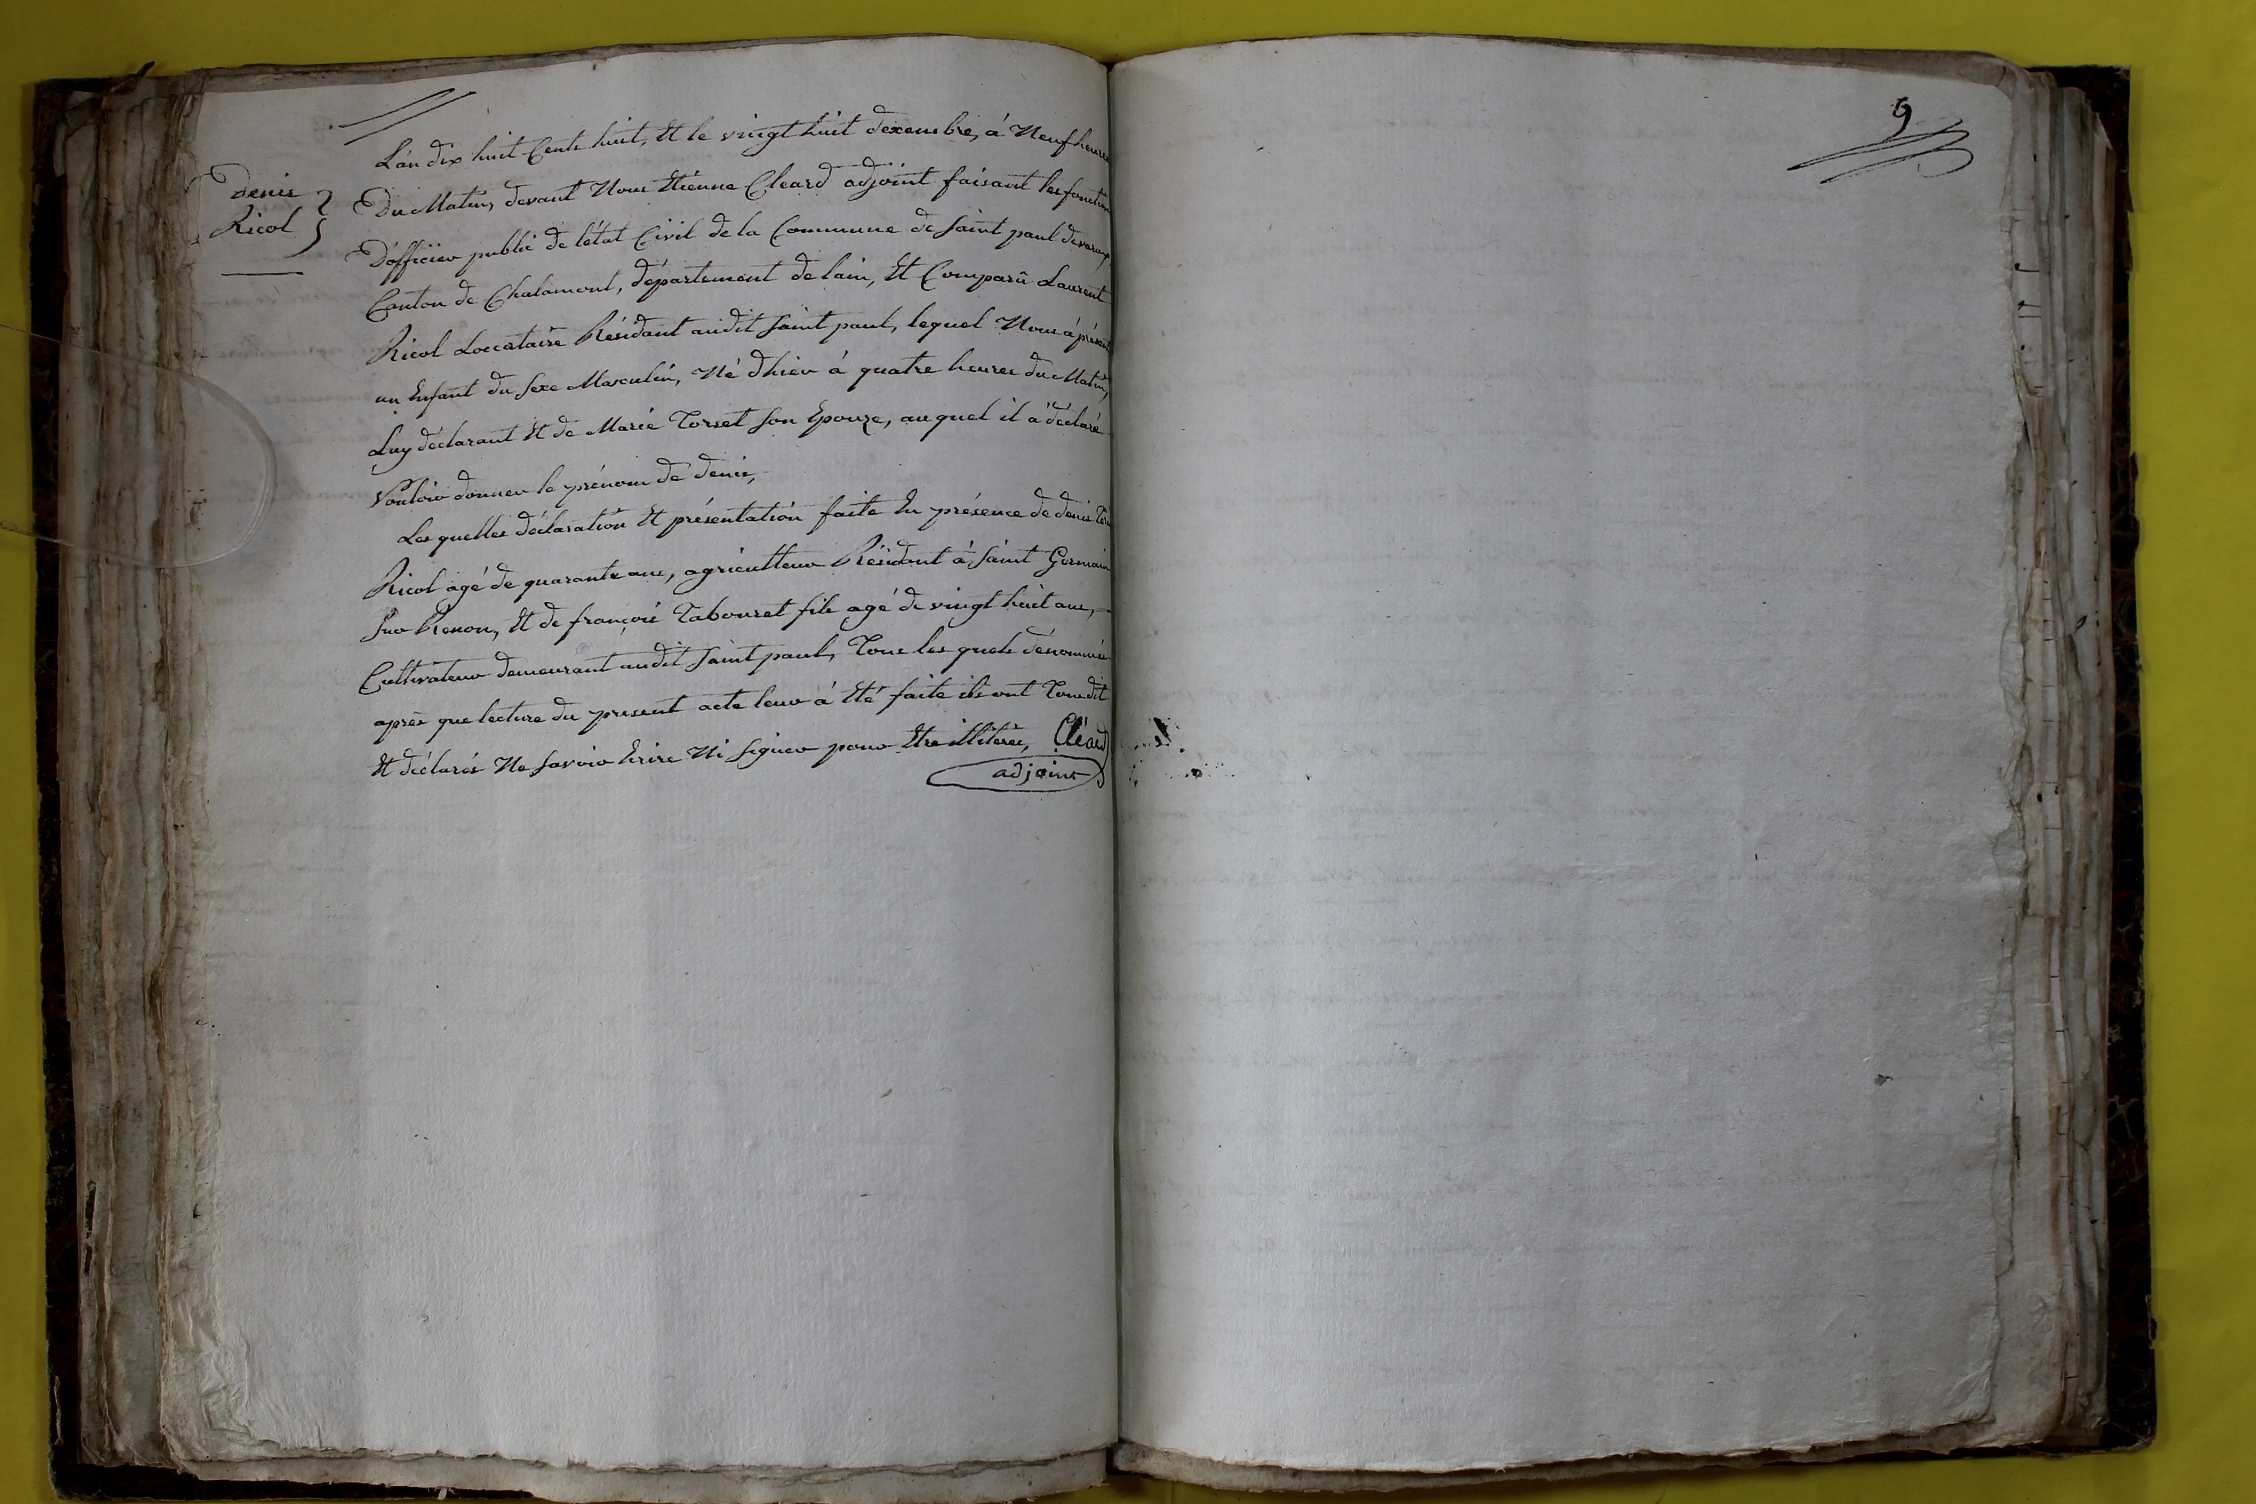 Denis
Ricol
L'an dix huit Cents huit, Et le vingt huit dexembre, à Neuf heures
Du Matin, devant Nous Etienne Cleard adjoint faisant les fonction
D'officier public de l'état Civil de la Commune de Saint paul devarax
Canton de Chalamont, département de lain, Et Comparû Laurent
Ricol Loccataire Résidant audit Saint paul, lequel Nous à présent
un Enfant du Sexe Masculin, Né d'hier à quatre heures du Matin,
Luy déclarant Et de Marie Torset Son Epouze, au quel il à déclaré
Vouloir donner le prénom de denis,
Les quelles déclaration Et présentation faite En présence de denis
Ricol agé de quarante ans, agriculteur Résidant à Saint Germain
Sur Renon, Et de françois Tabouret fils agé de vingt huit ans,
Cultivateur demeurant audit Saint paul, Tous les quels dénommés
après que lecture du present acte leur à Eté faite ils ont Tous dit
Et déclarés Ne Savoir Ecrire Ni Signer pour Etre illiterés, Cléard
adjoint
9